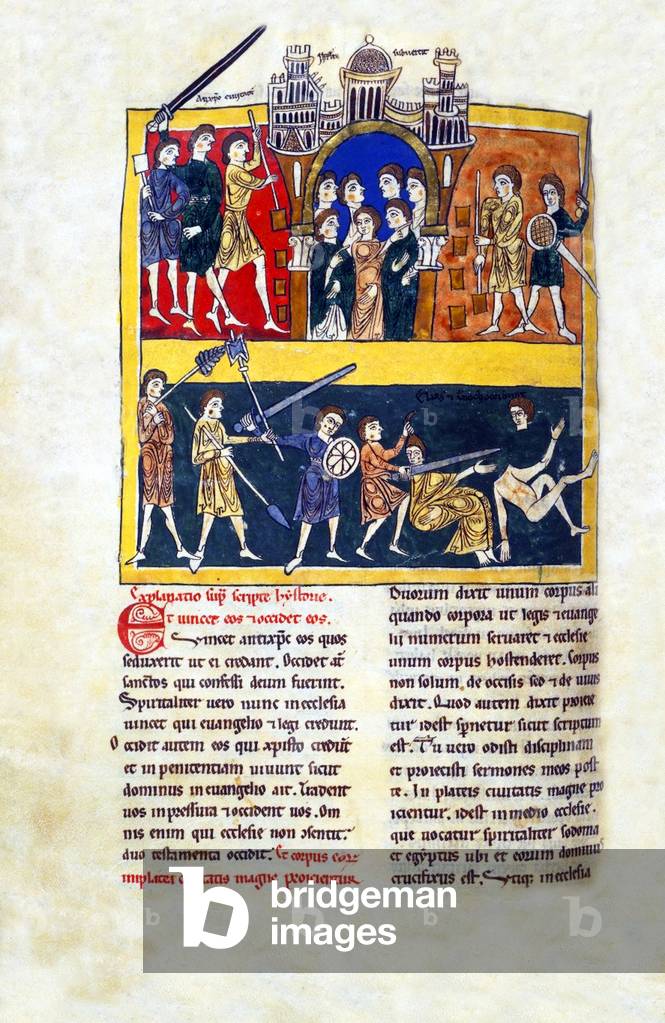 Antixpc civitate
subvertit
Explanatio sup scripte hystorie.
Et vincet eos ⁊ occidet eos.
Vincet antixpc eos quos
seduxerit ut ei credant. Occidet aut
sanctos qui confessi deum fuerint.
Spiritaliter vero nunc in ecclesia
vincet qui evangelio ⁊ legi credunt.
Occidit autem eos qui xpisto credunt
et in penitentiam vivunt sicut
dominus in evangelio ait. Tradent
vos in pressura ⁊ occident vos. Om
nis enim qui ecclesie non
duo testamenta occidit. Et corpus eor
in plateis civitatis magne proicientur
Duorum dixit unum corpus ali
quando corpora ut legis ⁊ evange
lii numerum servaret ⁊ ecclesie
unum corpus hostenderet. Corpus
non solum de occisis sed ⁊ de vivis
dixit. Quod autem dixit proicie
tur idest spnetur sicut scriptum
est. Tu vero odisti disciplinam
et proiecisti sermones meos post
te. In plateis civitatis magne pro
icientur. idest in medio ecclesie.
que vocatur spiritaliter sodoma
et egyptus ubi et eorum dominus
crucifixus est. Utiq: in ecclesia
bridgeman
images